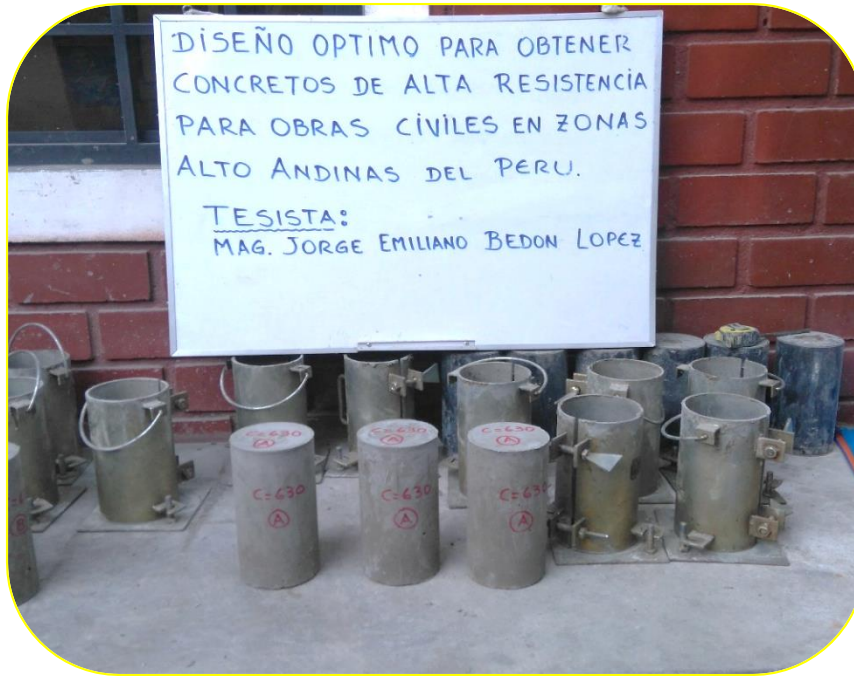 DISEÑO OPTIMO PARA OBTENER
CONCRETOS DE ALTA RESISTENCIA
PARA OBRAS CIVILES EN ZONAS
ALTO ANDINAS DEL PERU.
TESISTA:
MAG. JORGE EMILIANO BEDON LOPEZ
C=630
A
C=630
A
C=630
A
C=630
A
C=630
A
C=630
A
B